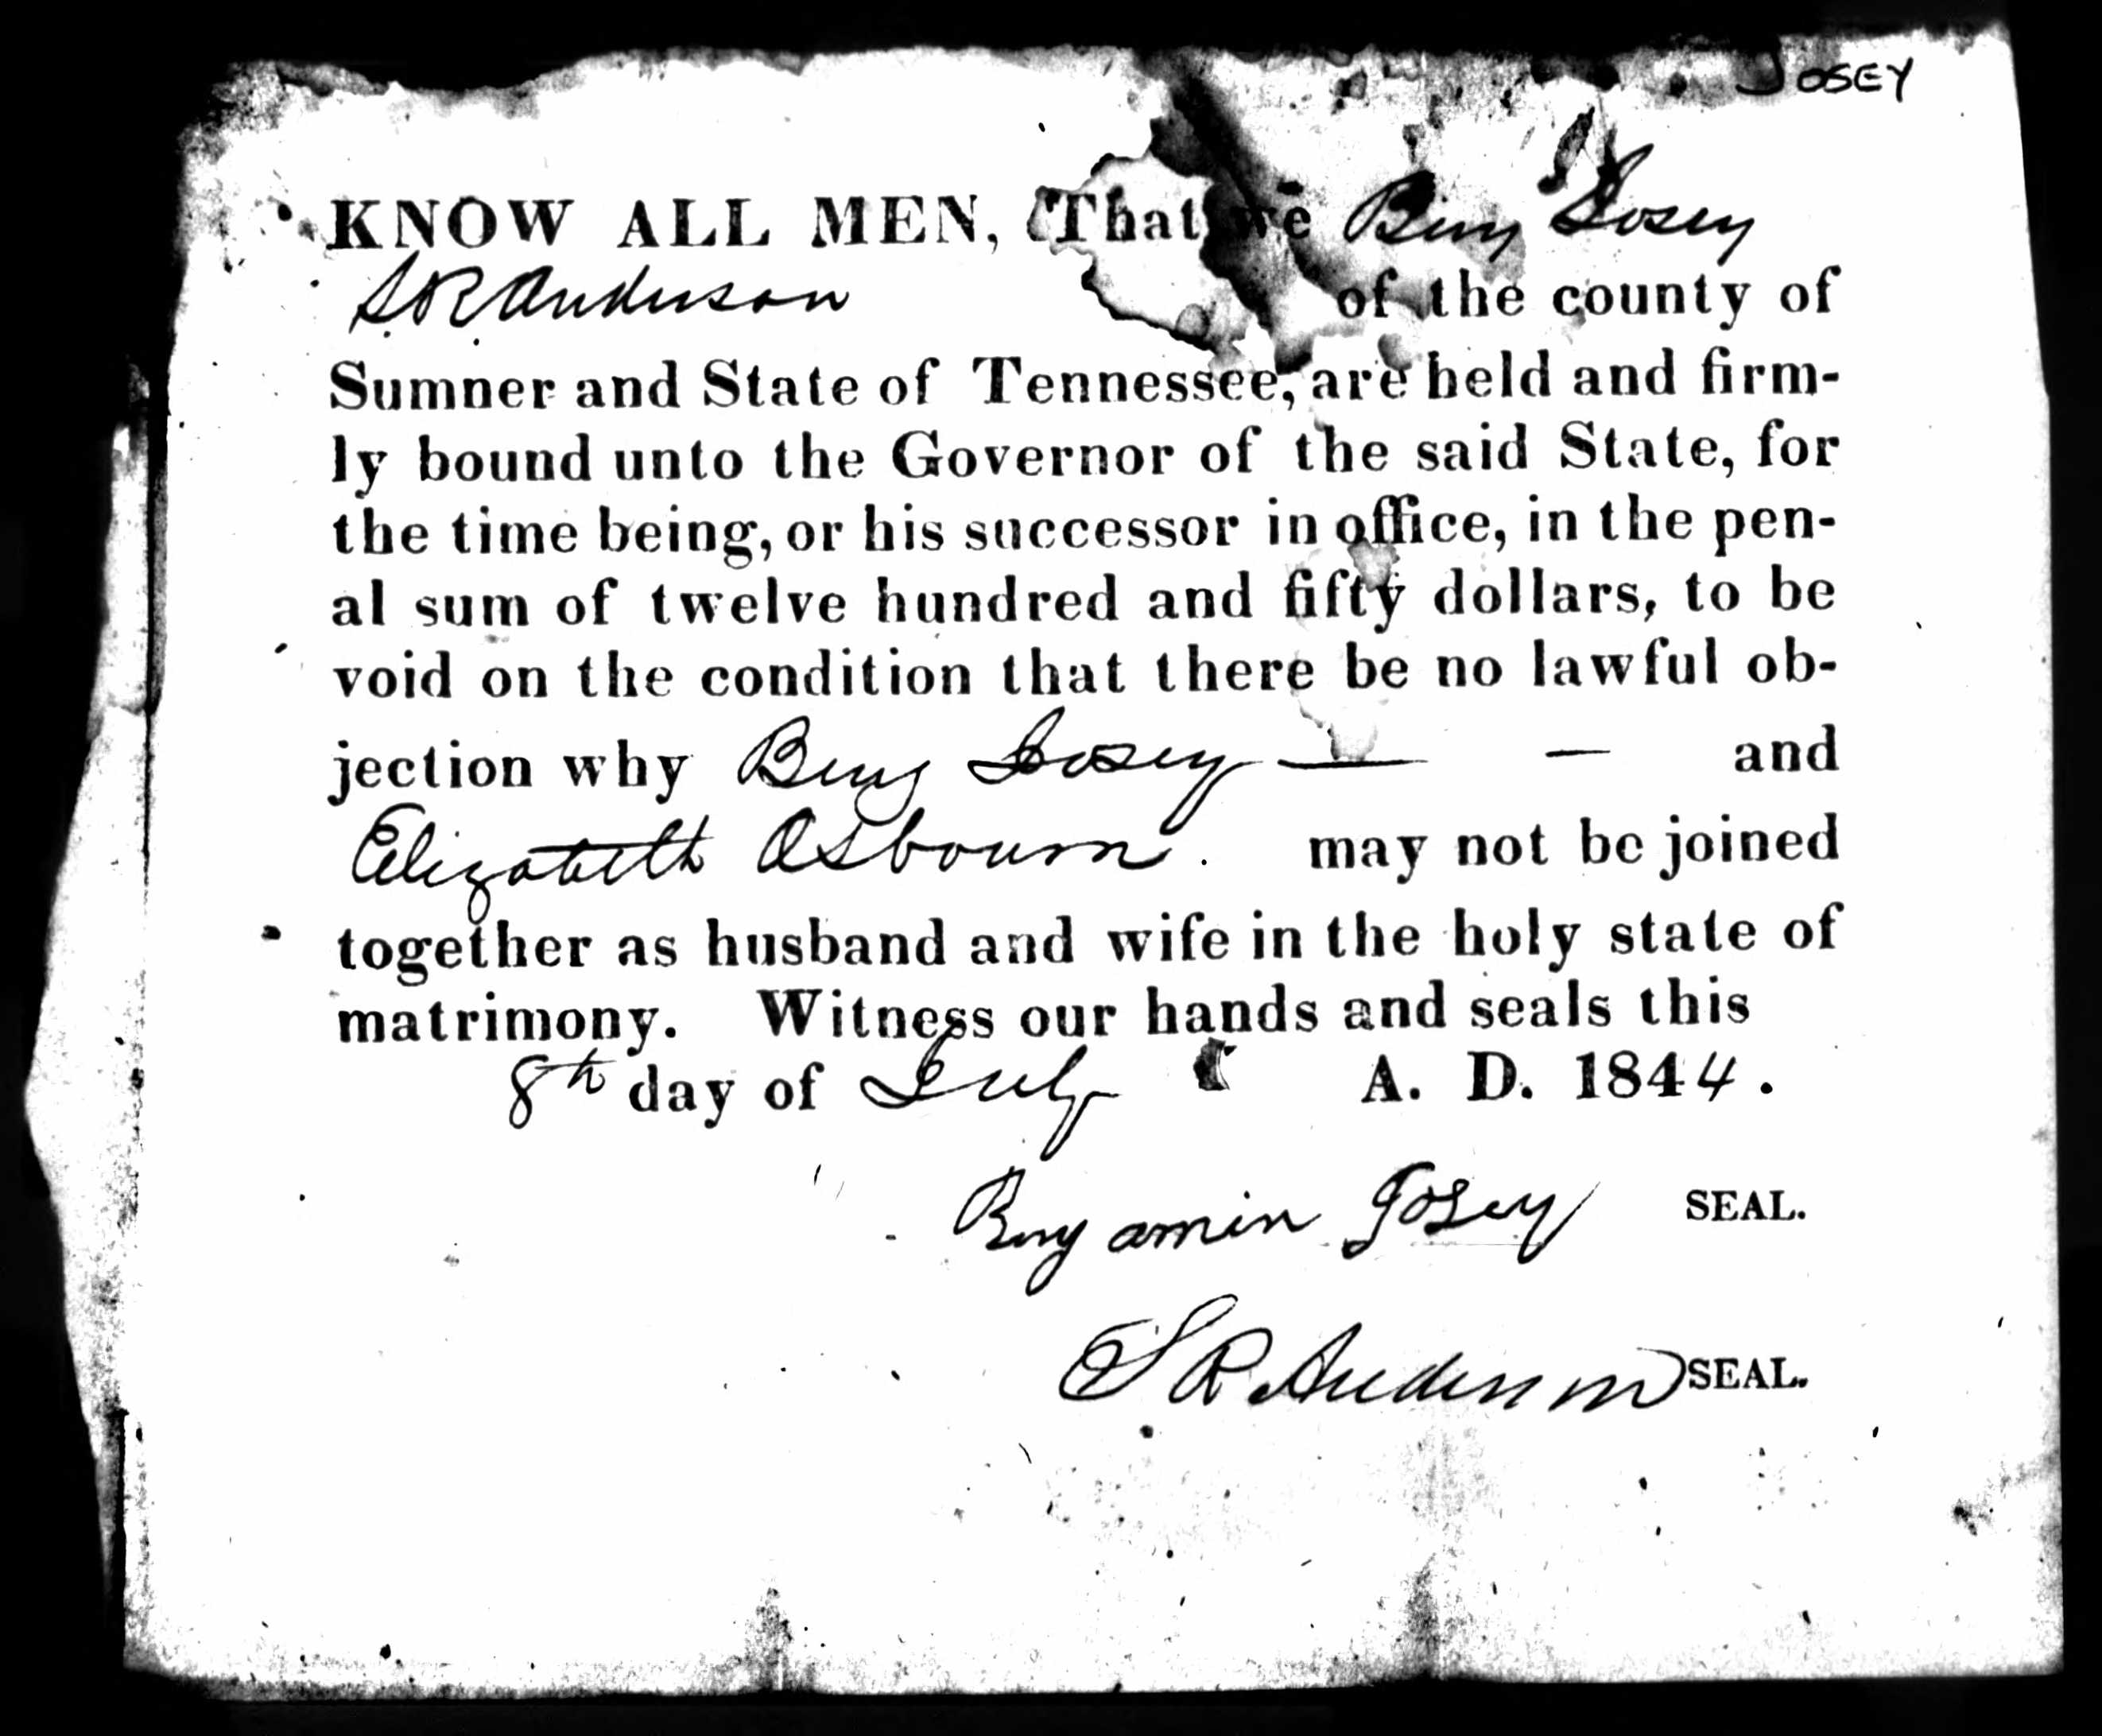 JOSEY
KNOW ALL MEN, That we Benj Josey
S R Anderson of the county of
Sumner and State of Tennessee, are held and firm-
ly bound unto the Governor of the said State, for
the time being, or his successor in office, in the pen-
al sum of twelve hundred and fifty dollars, to be
void on the condition that there be no lawful ob-
jection why Benj Josey — — and
Elizabeth Osbourn. may not be joined
together as husband and wife in the holy state of
matrimony. Witness our hands and seals this
8th day of July A. D. 1844.
Benjamin Josey SEAL.
S R Anderson SEAL.